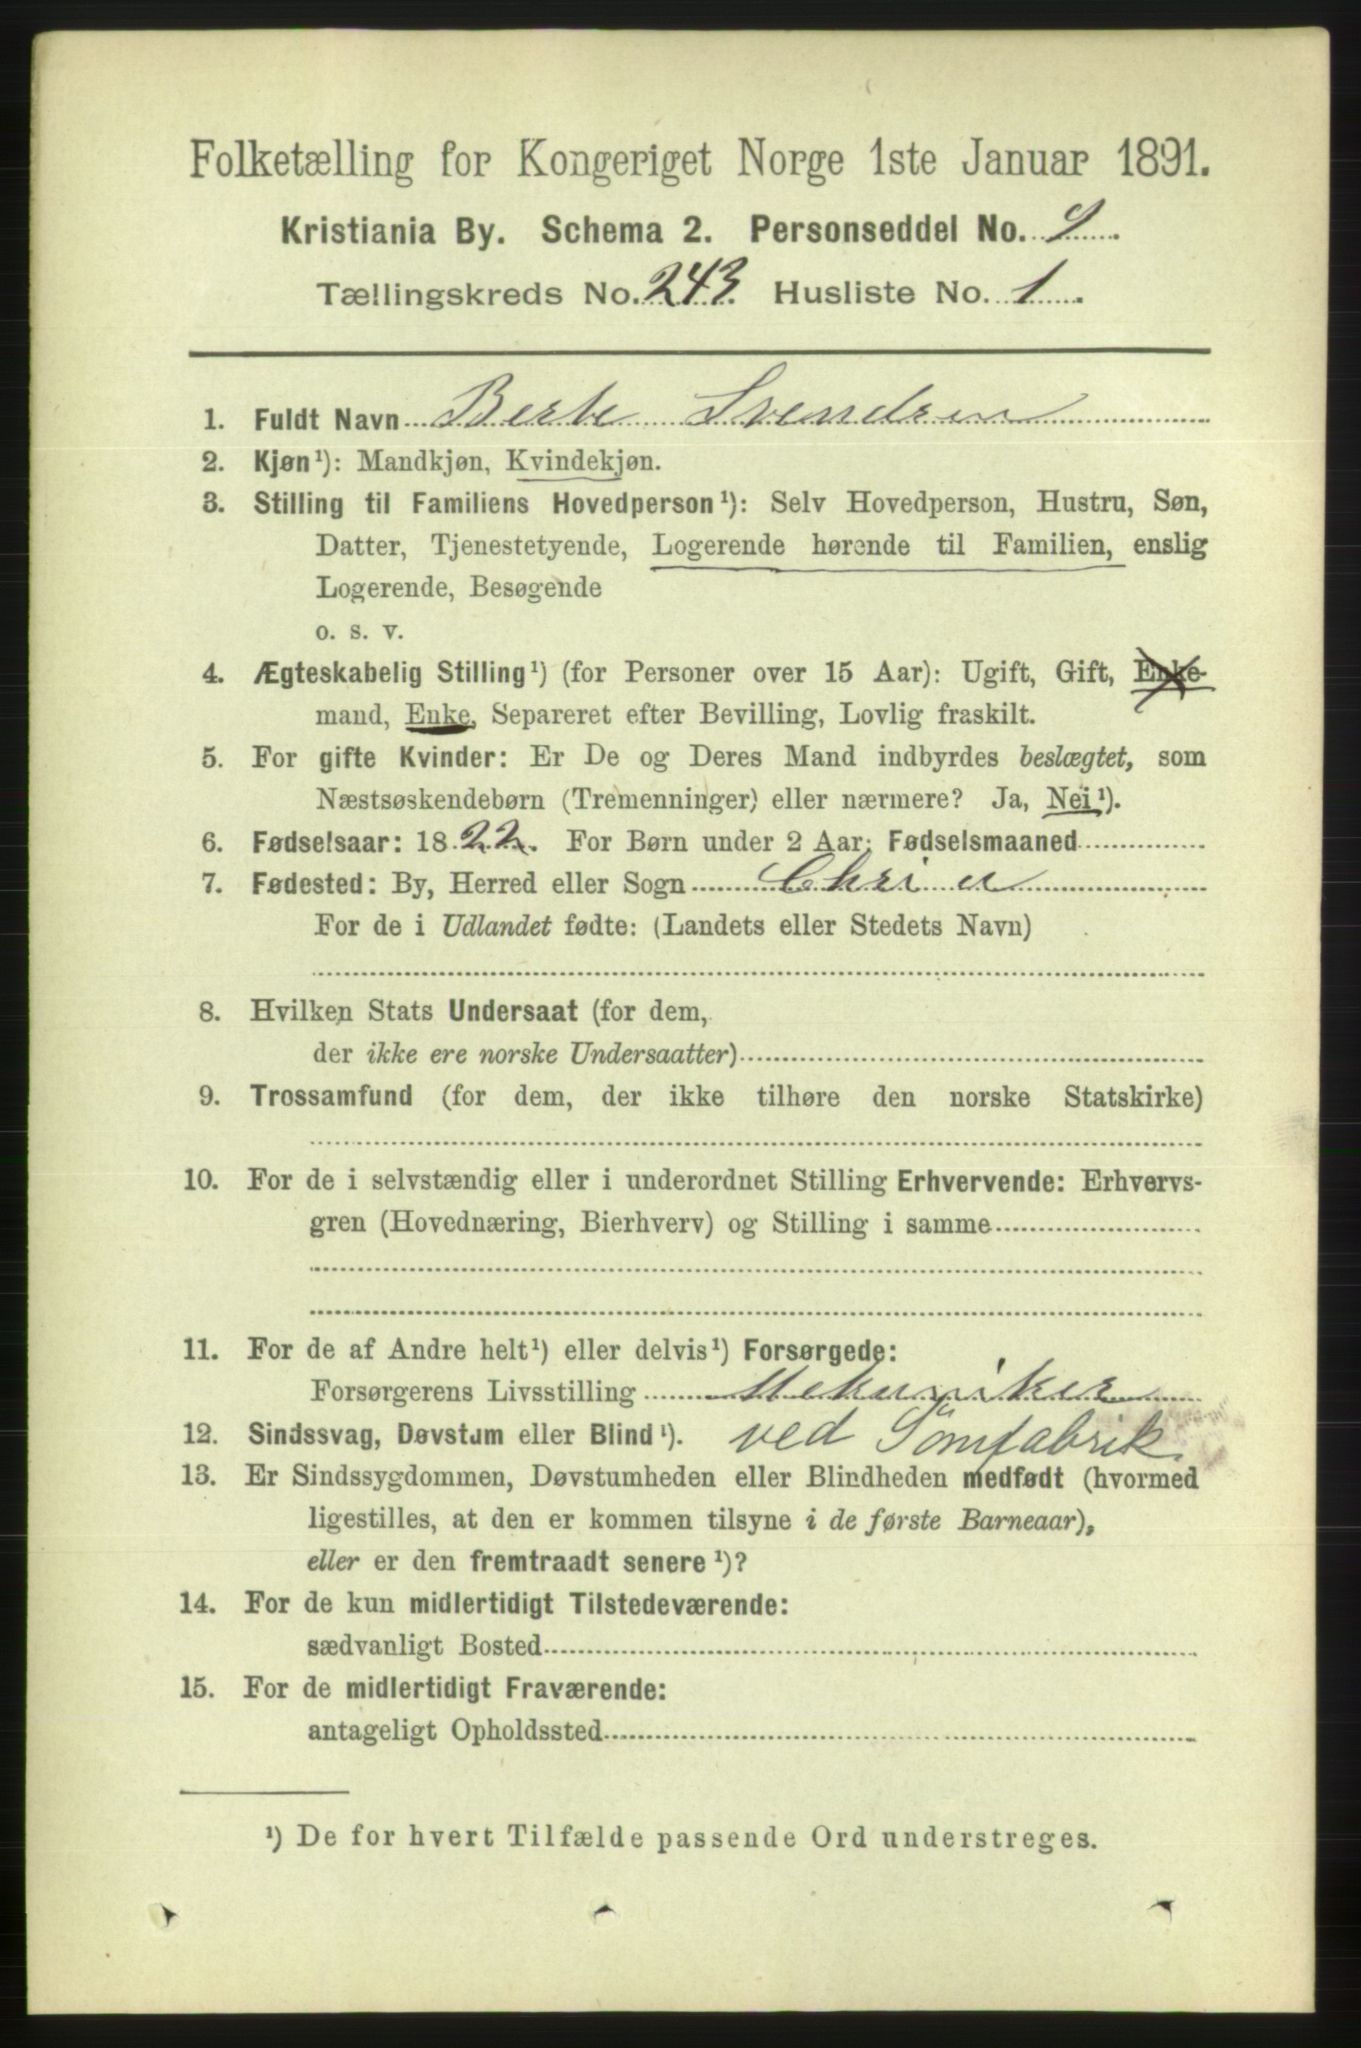 Folketælling for Kongeriget Norge 1ste Januar 1891.
Kristiania By. Schema 2. Personseddel No. 9
Tællingskreds No. 243. Husliste No. 1
1. Fuldt Navn Berte Svendsen
2. Kjøn¹): Mandkjøn, Kvindekjøn.
3. Stilling til Familiens Hovedperson¹): Selv Hovedperson, Hustru, Søn,
Datter, Tjenestetyende, Logerende hørende til Familien, enslig
Logerende, Besøgende
o. s. v.
4. Ægteskabelig Stilling¹) (for Personer over 15 Aar): Ugift, Gift, Enke-
mand, Enke, Separeret efter Bevilling, Lovlig fraskilt.
5. For gifte Kvinder: Er De og Deres Mand indbyrdes beslægtet, som
Næstsøskendebørn (Tremenninger) eller nærmere? Ja, Nei¹).
6. Fødselsaar: 1822. For Børn under 2 Aar: Fødselsmaaned
7. Fødested: By, Herred eller Sogn Chria
For de i Udlandet fødte: (Landets eller Stedets Navn)
8. Hvilken Stats Undersaat (for dem,
der ikke ere norske Undersaatter)
9. Trossamfund (for dem, der ikke tilhøre den norske Statskirke)
10. For de i selvstændig eller i underordnet Stilling Erhvervende: Erhvervs-
gren (Hovednæring, Bierhverv) og Stilling i samme
11. For de af Andre helt¹) eller delvis¹) Forsørgede:
Forsørgerens Livsstilling Mekaniker
12. Sindssvag, Døvstum eller Blind¹). ved Sömfabrik
13. Er Sindssygdommen, Døvstumheden eller Blindheden medfødt (hvormed
ligestilles, at den er kommen tilsyne i de første Barneaar),
eller er den fremtraadt senere¹)?
14. For de kun midlertidigt Tilstedeværende:
sædvanligt Bosted
15. For de midlertidigt Fraværende:
antageligt Opholdssted
¹) De for hvert Tilfælde passende Ord understreges.